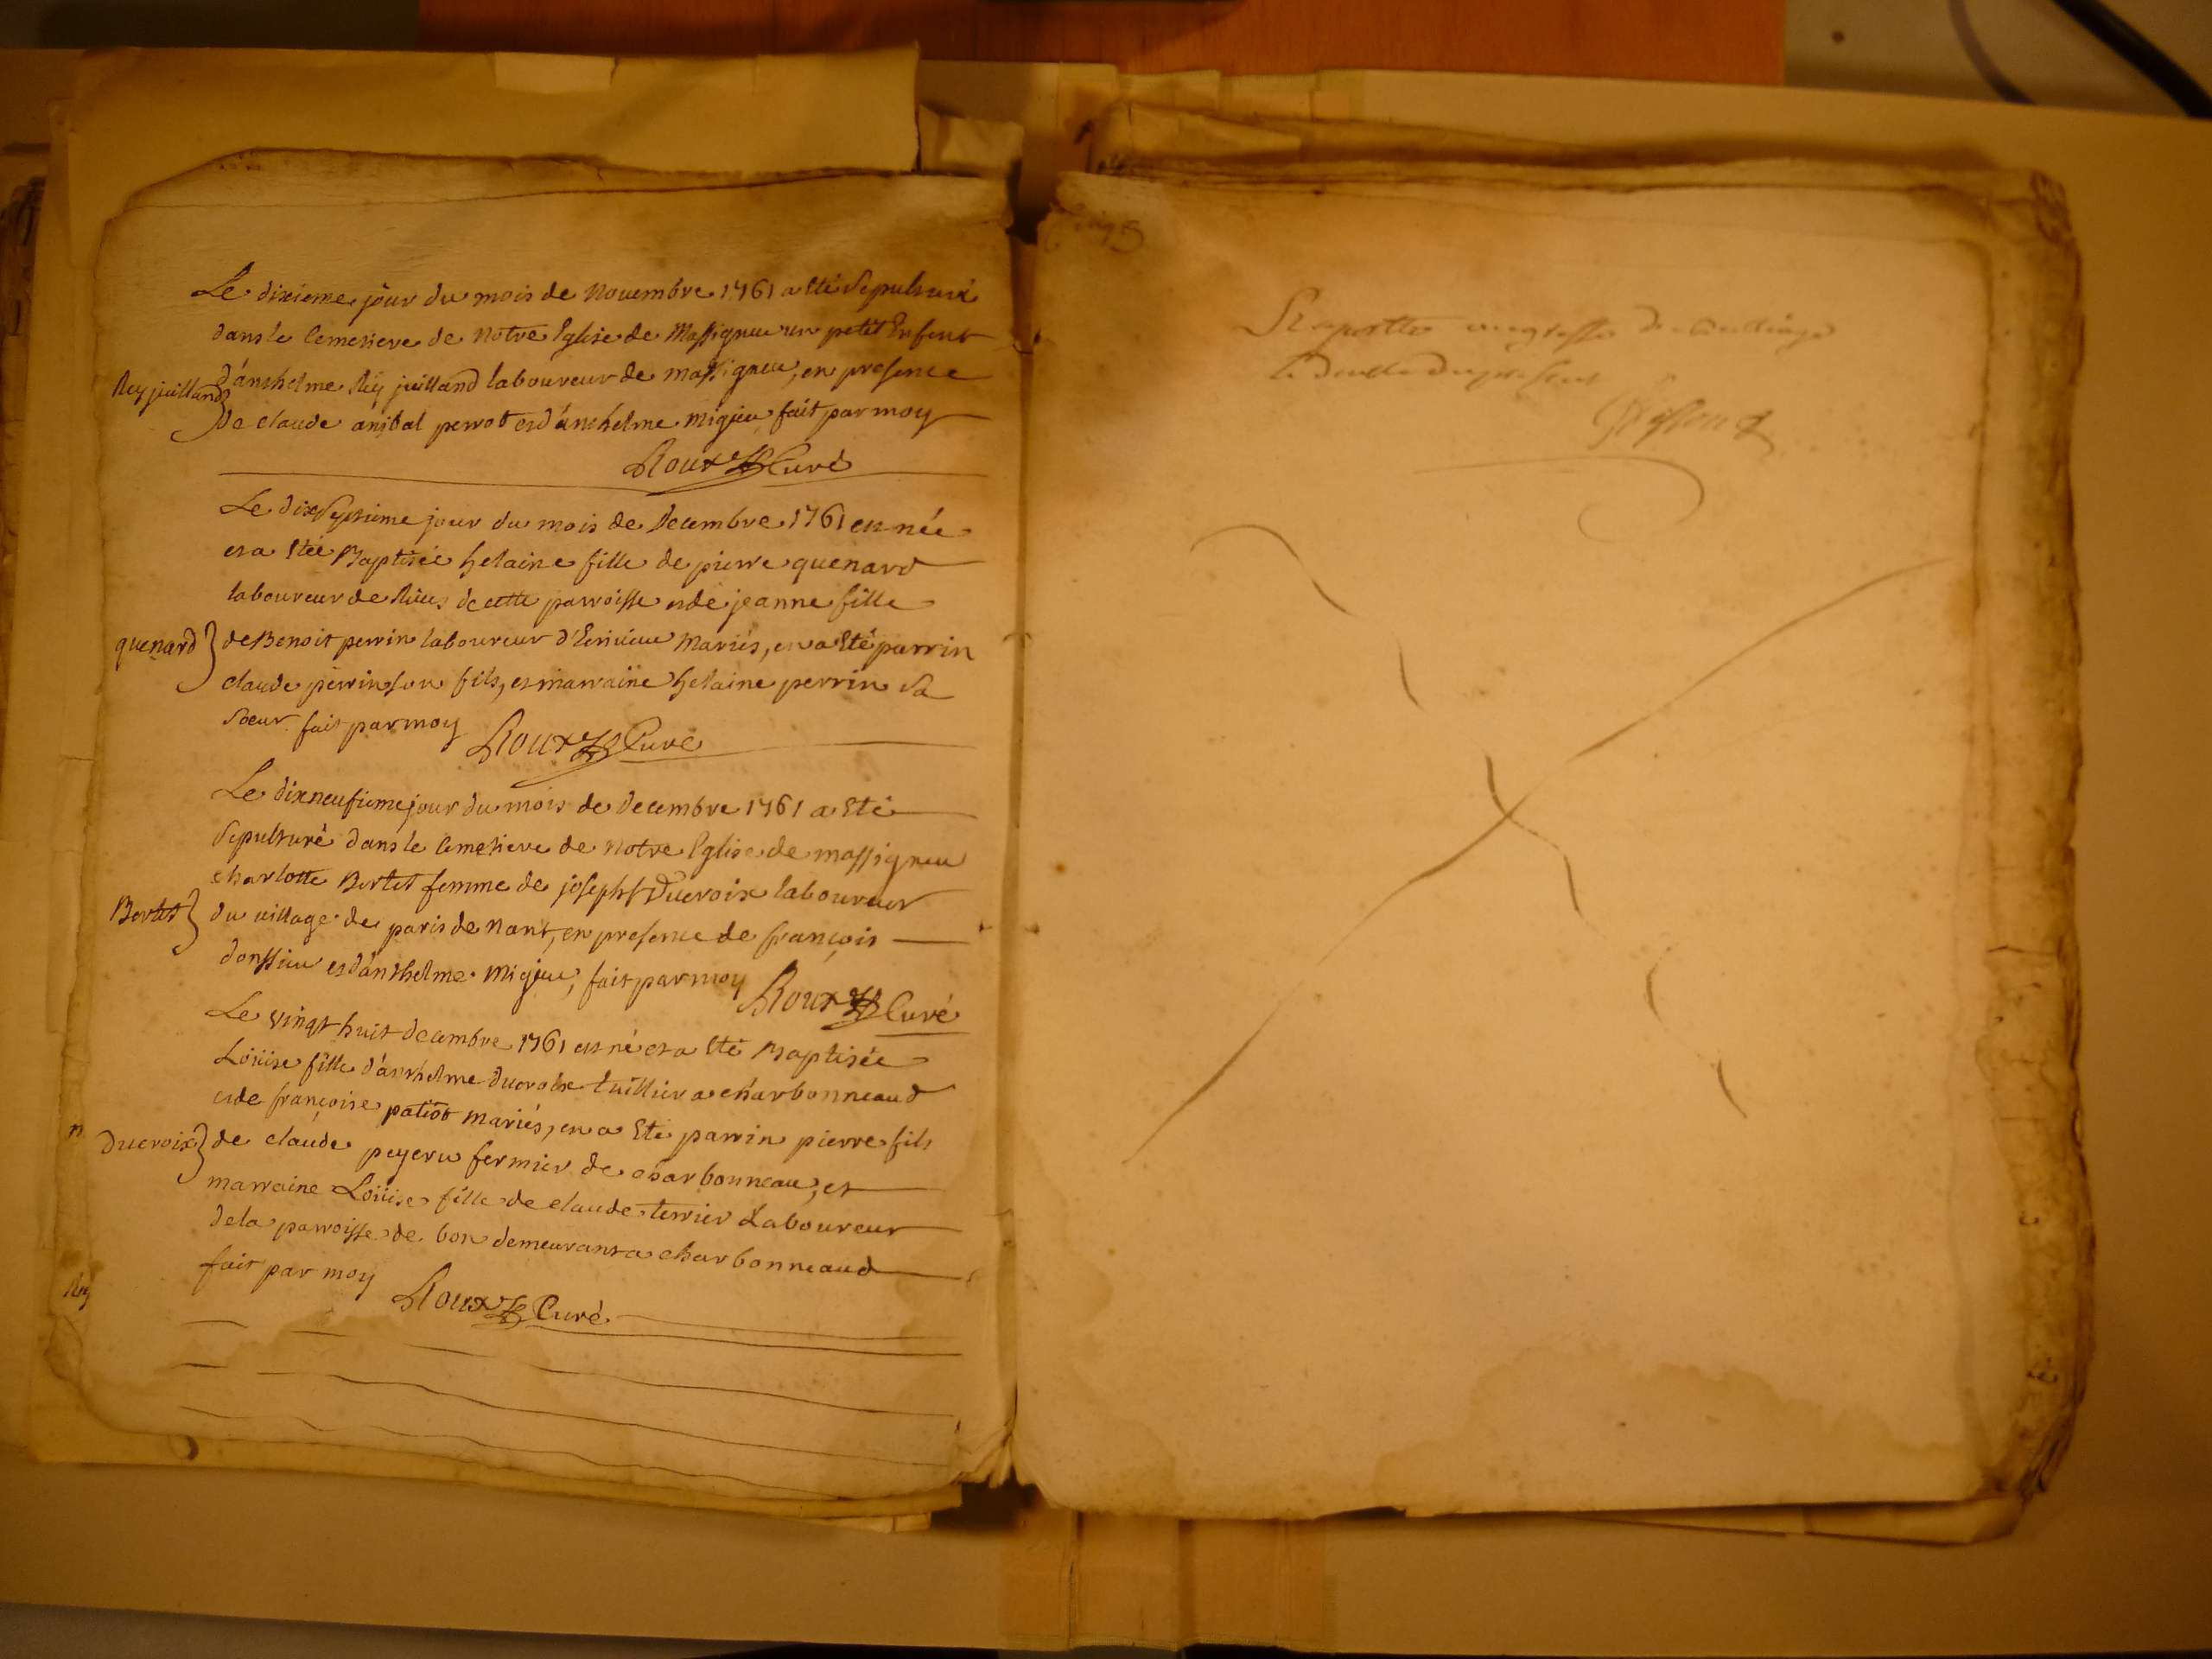 Le dixieme jour du mois de Novembre 1761 a Eté Sepulturé
dans le Cemetiere de Notre Eglise de Massigneu un petit Enfent
Rey juilland
d'anthelme Reÿ juilland laboureur de massigneu, en presence
de claude anibal perrot et d'anthelme migieu fait par moy
Roux Curé
Le dixseptieme jour du mois de Decembre 1761 est née
et a Eteé Baptiseé helaine fille de pierre quenard
laboureur de cette parroisse et de jeanne fille
quenard
de Benoit perrin laboureur mariés, en a Eté parrin
claude perrin son fils, et marraine helaine perrin Sa
Soeur fait par moy Roux Curé
Le dixneufieme jour du mois de Decembre 1761 a Eté
Sepulturé dans le Cemetiere de Notre Eglise de massigneu
charlotte Bertet femme de joseph Ducroix laboureur
Bertet
du village de paris de Nant, en presence de françois
donssieu et d'anthelme Migieu, fait par moy Roux Curé
Le vingt huit decembre 1761 est né et a Eté Baptisée
Loüise fille d'anthelme ducroix tuillier a charbonneaud
et de françoise patiot mariés, en a Eté parrin pierre fils
Ducroix
de claude peyeru fermier de charbonneau, et
marraine Loüise fille de claude terrier Laboureur
dela parroisse de bon demeurant a charbonneaud
fait par moy Roux Curé
Rey